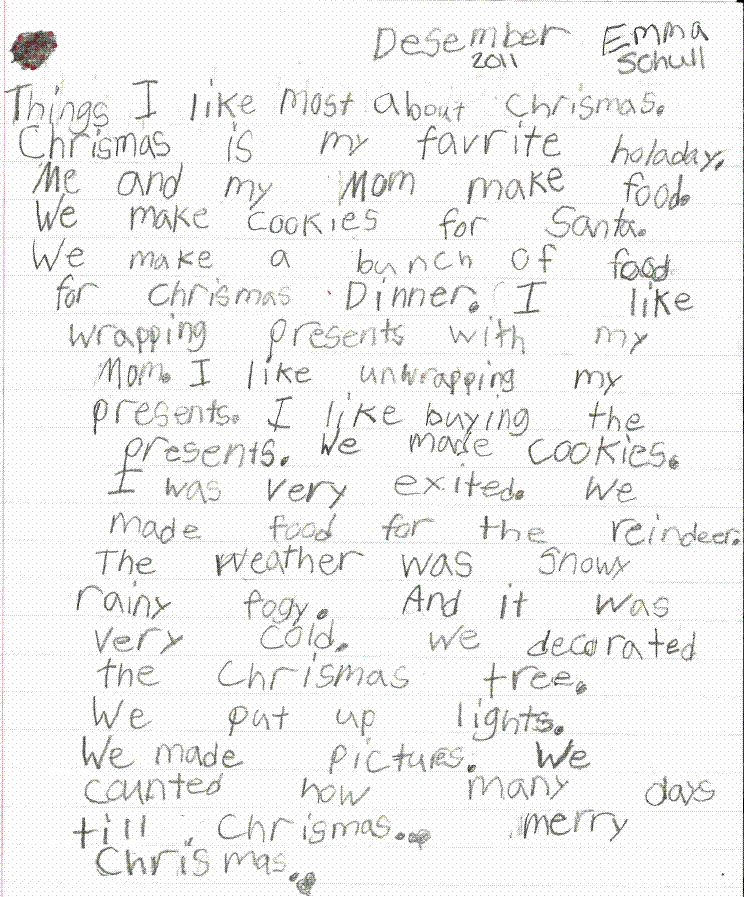 Desember Emma
2011 Schull
Things I like most about chrismas.
Chrismas is my favrite holaday.
Me and my Mom make food.
We make cookies for Santa.
We make a bunch of food
for chrismas Dinner. I like
wrapping presents with my
Mom. I like unwrapping my
presents. I like buying the
presents. We made cookies.
I was very exited. We
made food for the reindeer.
The weather was snowy
rainy fogy. And it was
very cold. We decorated
the Chrismas tree.
We put up lights.
We made pictures. We
counted how many days
till Chrismas. merry
Chrismas.